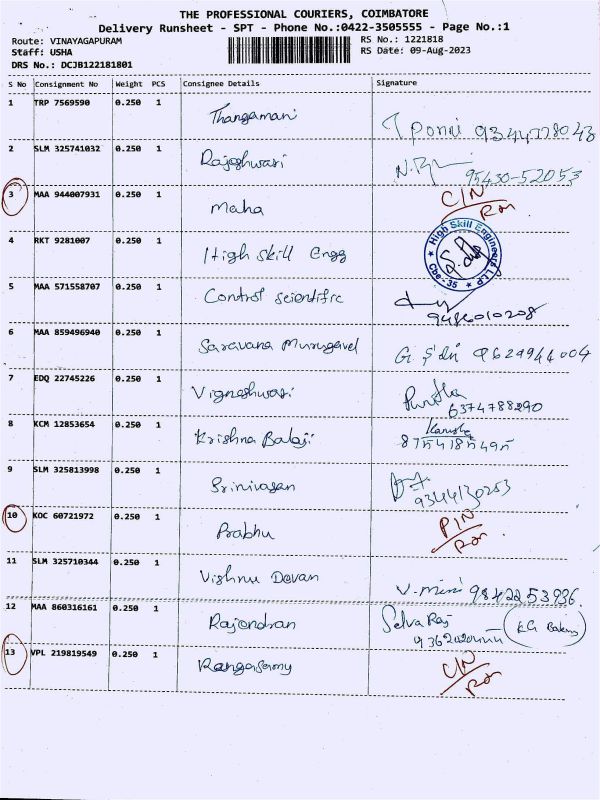 THE PROFESSIONAL COURIERS, COIMBATORE
Delivery Runsheet - SPT - Phone No.:0422-3505555 - Page No.:1
Route: VINAYAGAPURAM RS No.: 1221818
Staff: USHA RS Date: 09-Aug-2023
DRS No.: DCJB122181801
S No Consignment No Weight PCS Consignee Details Signature
1 TRP 7569590 0.250 1 Thangamani
2 SLM 325741032 0.250 1 Rajeshwari 95430-52053
3 MAA 944007931 0.250 1 Maha
4 RKT 9281007 0.250 1 High Skill Engg High Skill Engineers LLP Cbe - 35
5 MAA 571558707 0.250 1 Control scientific 9486010208
6 MAA 859496940 0.250 1 Saravana Murugavel 9629944004
7 EDQ 22745226 0.250 1 Vigneshwari 6374788290
8 KCM 12853654 0.250 1 Krishna Balaji 8754185495
9 SLM 325813998 0.250 1 Srinivasan 9344130253
10 KOC 60721972 0.250 1 Prabhu
11 SLM 325710344 0.250 1 Vishnu Devan V. mini 9842253936
12 MAA 860316161 0.250 1 Rajendran Selva Raj
13 VPL 219819549 0.250 1 Rangasamy